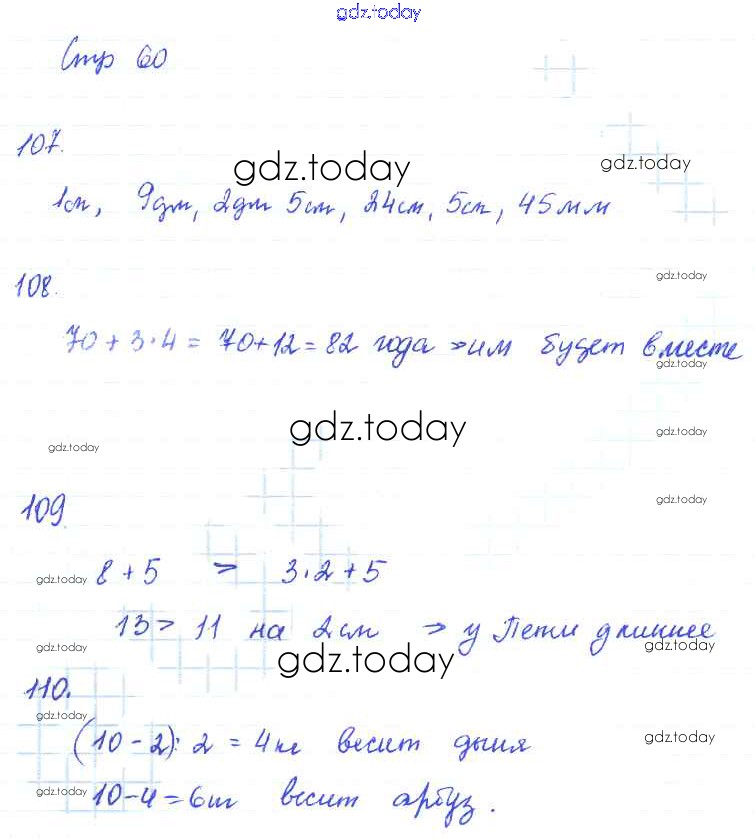 gdz.today
Стр 60
107.
gdz.today gdz.today
1см, 9дм, 2дм 5см, 24см, 5см, 45мм
gdz.today
108.
70 + 3·4 = 70+12 = 82 года → им будет вместе
gdz.today
gdz.today gdz.today
gdz.today
gdz.today
109
gdz.today 8 + 5 > 3·2 + 5
13 > 11 на 2см → у Пети длиннее
gdz.today gdz.today gdz.today
110.
gdz.today
(10 - 2) : 2 = 4кг весит дыня gdz.today
gdz.today 10-4 = 6кг весит арбуз.